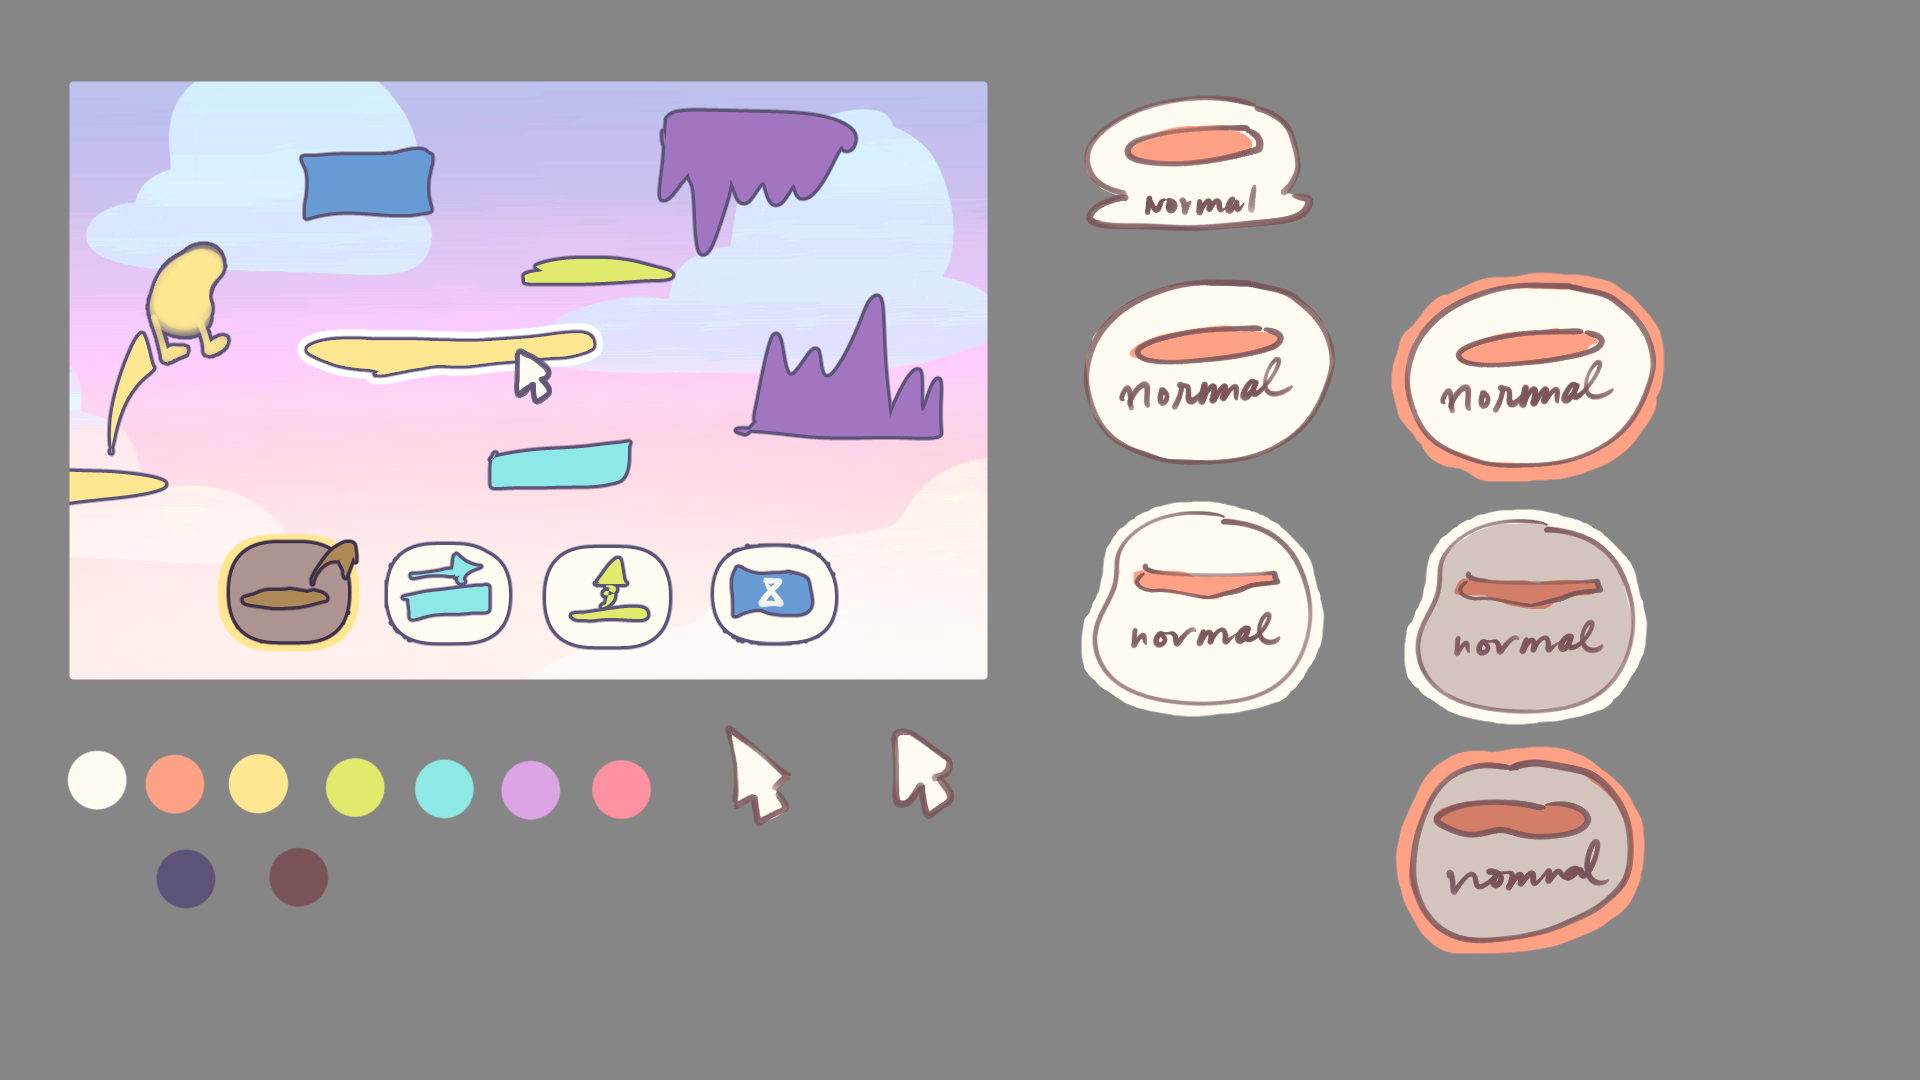 Normal
normal
normal
normal
normal
normal